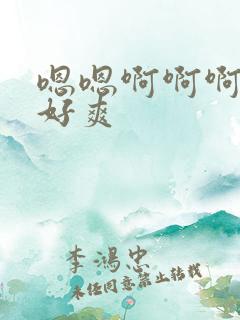 嗯嗯啊啊啊
好爽
李鸿忠
未经同意禁止转载